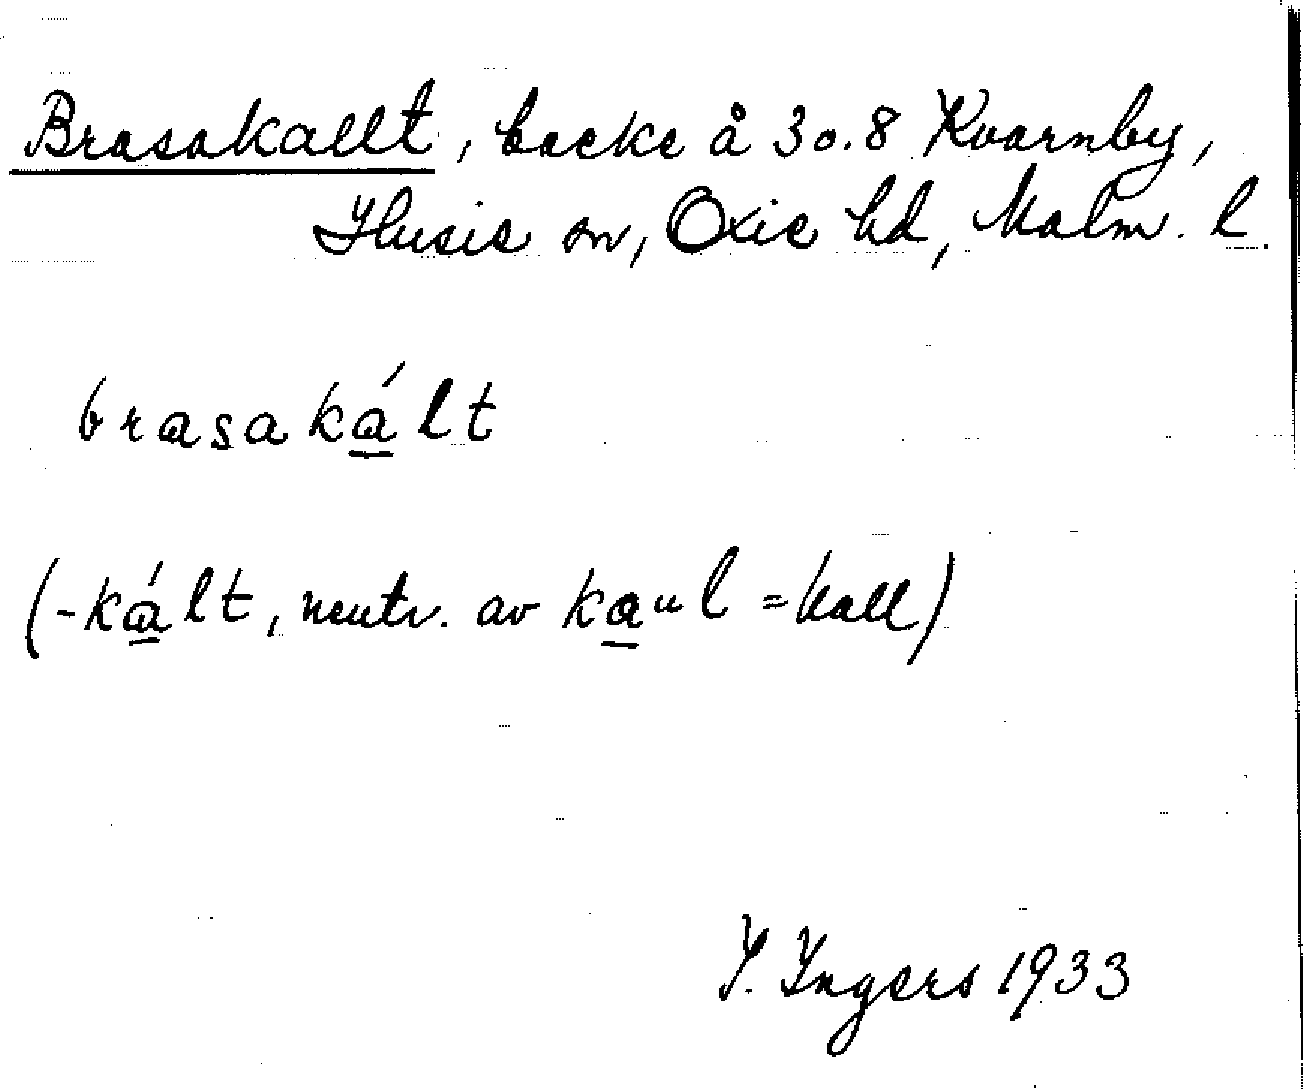 Brasakallt, backe å 30.8 Kvarnby,
Husie sn, Oxie hd, Malm. l.
brasakált
(-kált, neutr. av kaul = kall)
I. Ingers 1933